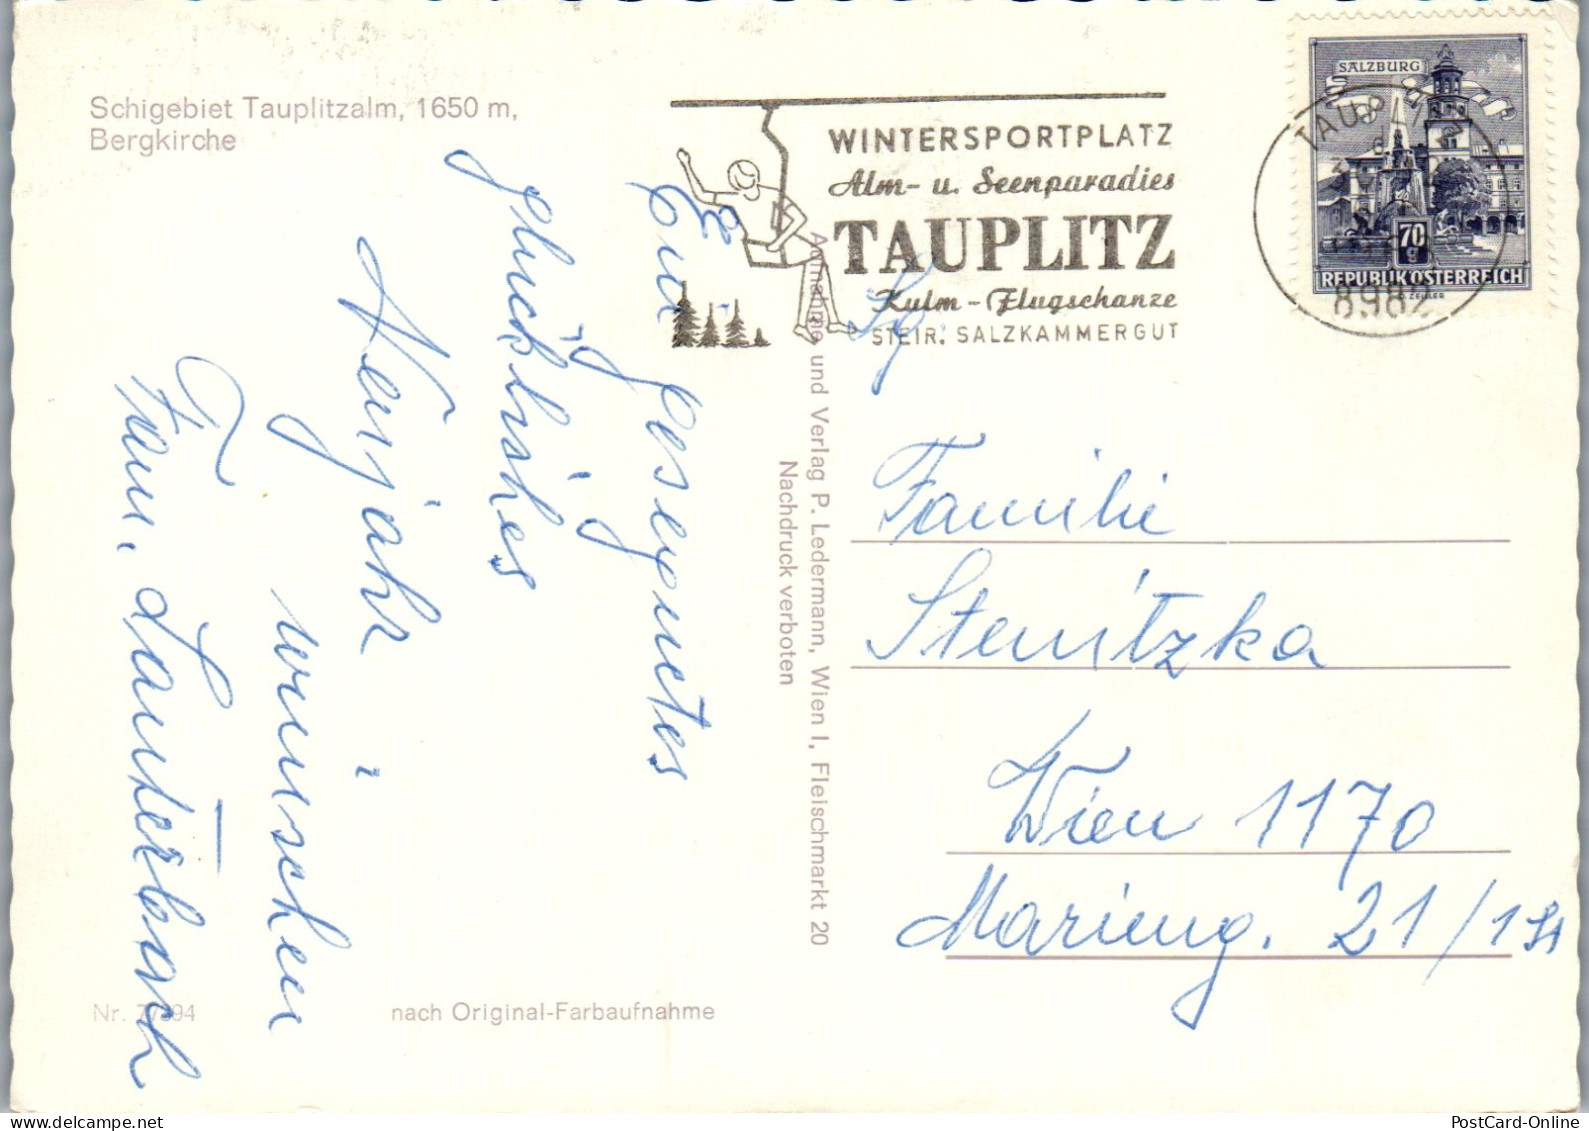 Schigebiet Tauplitzalm, 1650 m,
Bergkirche
WINTERSPORTPLATZ
Alm- u. Seenparadies
TAUPLITZ
Kulm - Flugschanze
STEIR. SALZKAMMERGUT
SALZBURG
70
g
REPUBLIK ÖSTERREICH
TAUPLITZ
8982
Ein gesegnetes
glückliches
Neujahr
wünschen
Fam. Lauterbach
Aufnahme und Verlag P. Ledermann, Wien I, Fleischmarkt 20
Nachdruck verboten
Familie
Stenitzka
Wien 1170
Marieng. 21/1
Nr.
nach Original-Farbaufnahme
PostCard-Online